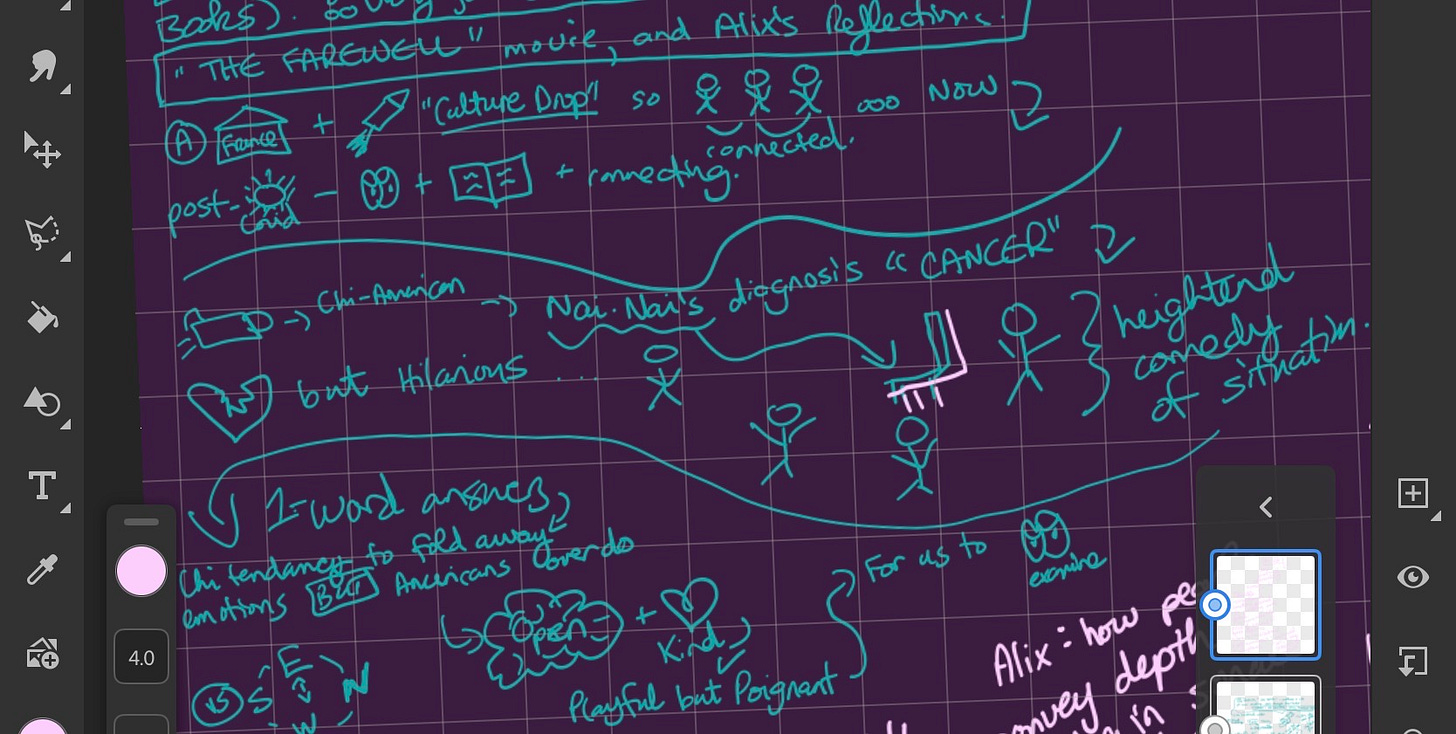 Books).
"THE FAREWELL" movie, and Alix's Reflections.
A France + "Culture Drop" so ooo NOW
connected.
post- Covid - + + connecting.
Chi-American → Nai-Nai's diagnosis "CANCER"
but Hilarious ...
heightend
comedy
of situation.
1-word answers
Chi tendancy to fold away
emotions BUT Americans overdo
Open + Kind
Playful but Poignant
For us to
examine
S E N W
Alix: how
depth
in
4.0